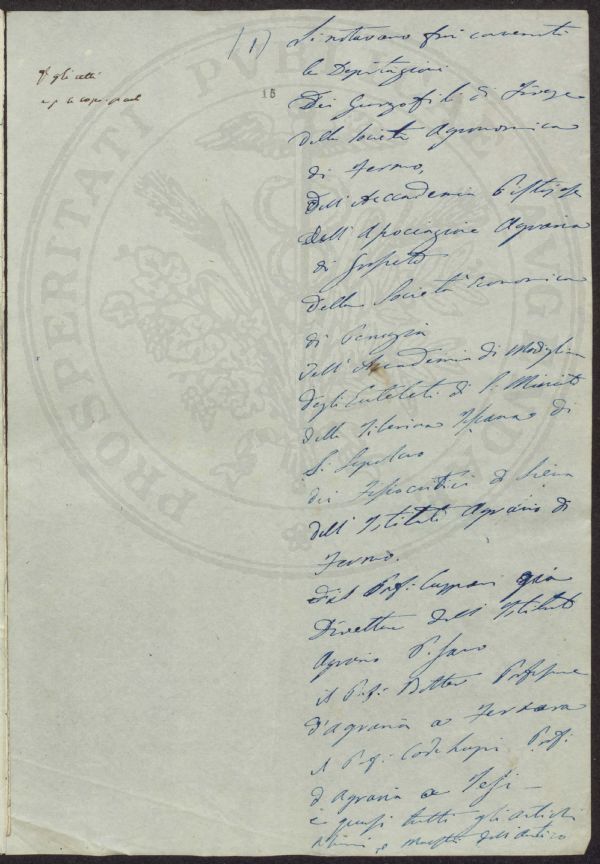 (1) Si notavano fri convenuti
le Deputazioni
15
Dei Georgofili di Firenze
della Società Agronomica
di Fermo,
Dell'Accademia Pistojese
dell'Associazione Agraria
di Grosseto
Della Società Economica
di Perugia
dell'Accademia di Modigliana
degli Euteleti di S. Miniato
della Tiberina Toscana di
S. Sepolcro
dei Fisiocritici di Siena
dell'Istituto Agrario di
Fermo.
dal Prof: già
Direttore dell'Istituto
Agrario Pisano
il Prof: Botter Professore
d'agraria a Ferrara
il Prof: Codelupi Prof:
d'Agraria a Jesi
e quasi tutti gli antichi
Alunni e maestri dell'antico
PROSPERITATI PVBLICAE AVG